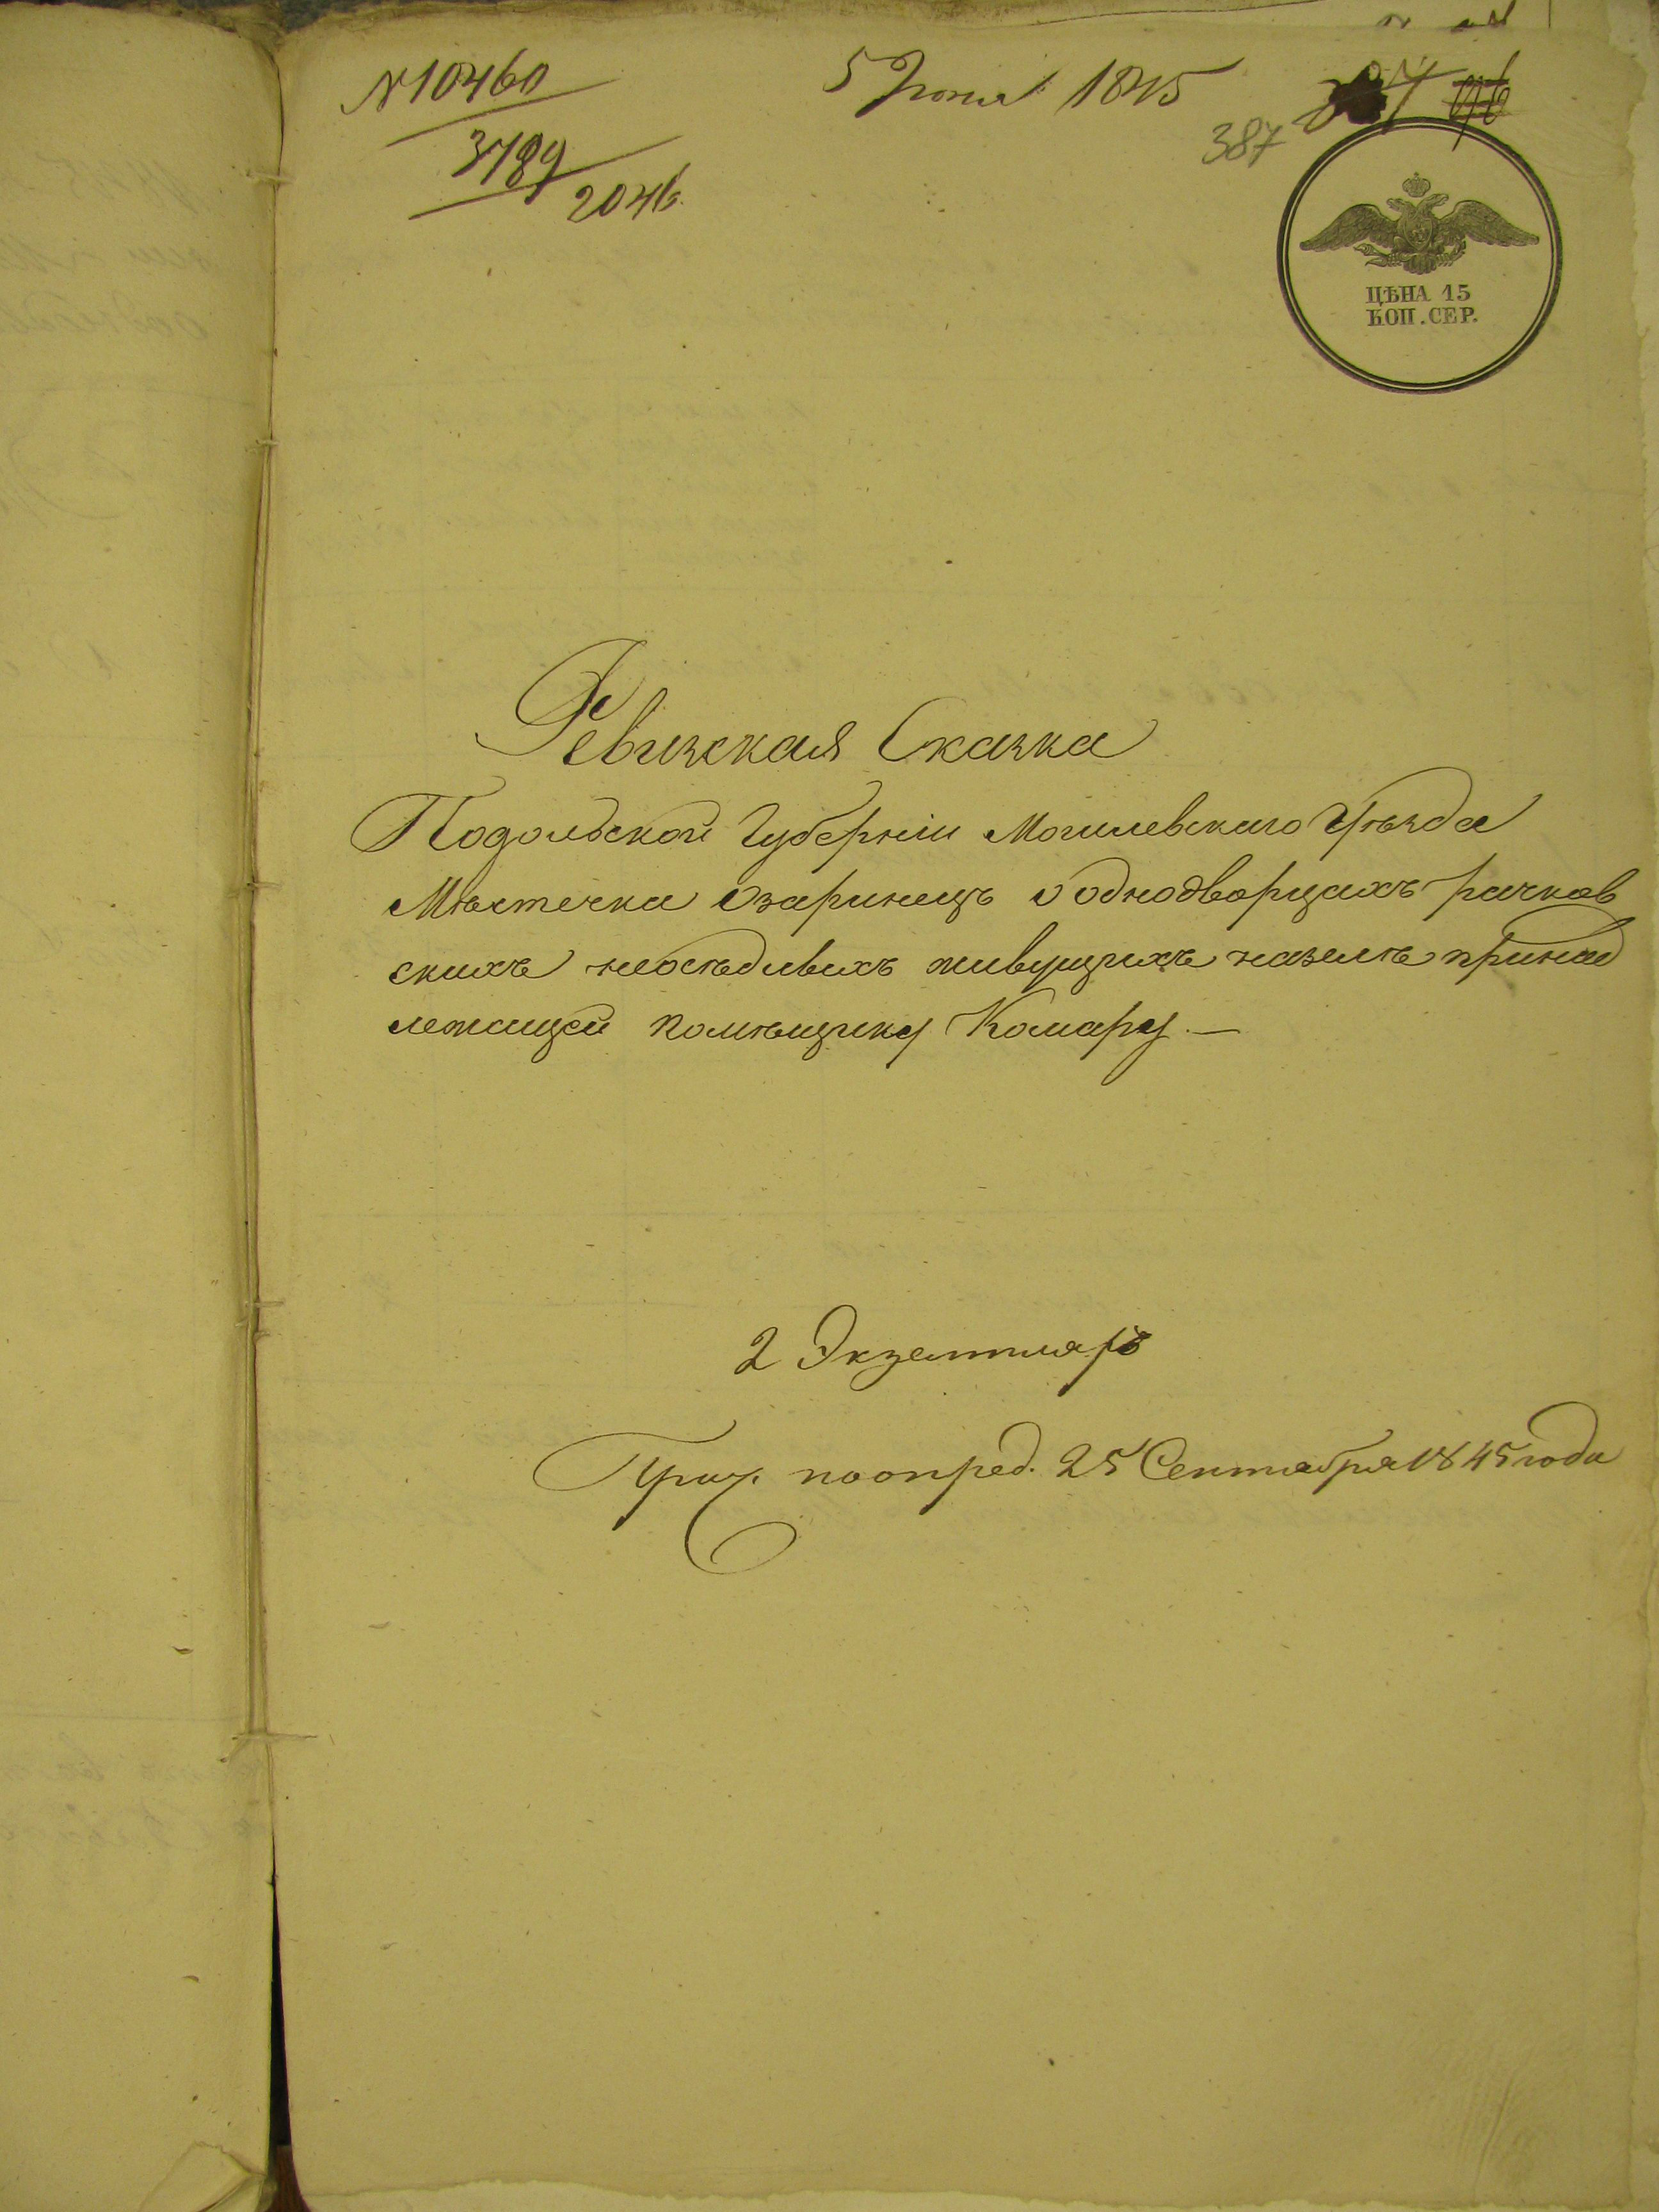 N 10460
5 Июня 1845
3789
2046.
387
ЦѢНА 15
КОП. СЕР.
Ревизская Сказка
Подольской Губерніи Могилевскаго Уѣзда
Мѣстечка Озаринецъ о однодворцахъ рачков
скихъ неосѣдлыхъ живущихъ на землѣ принад
лежащей помѣщику Комару. —
2 Экземпляръ
по опред. 25 Сентября 1845 года